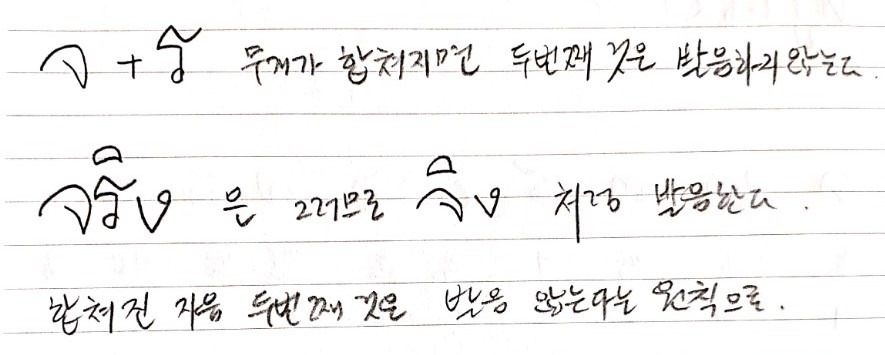 จ + ร 무가 합쳐지면 두번째 것은 발음하지 않는다.
จริง 은 그러므로 จิง 처럼 발음한다.
합쳐진 자음 두번째 것은 발음 않는다는 원칙으로.